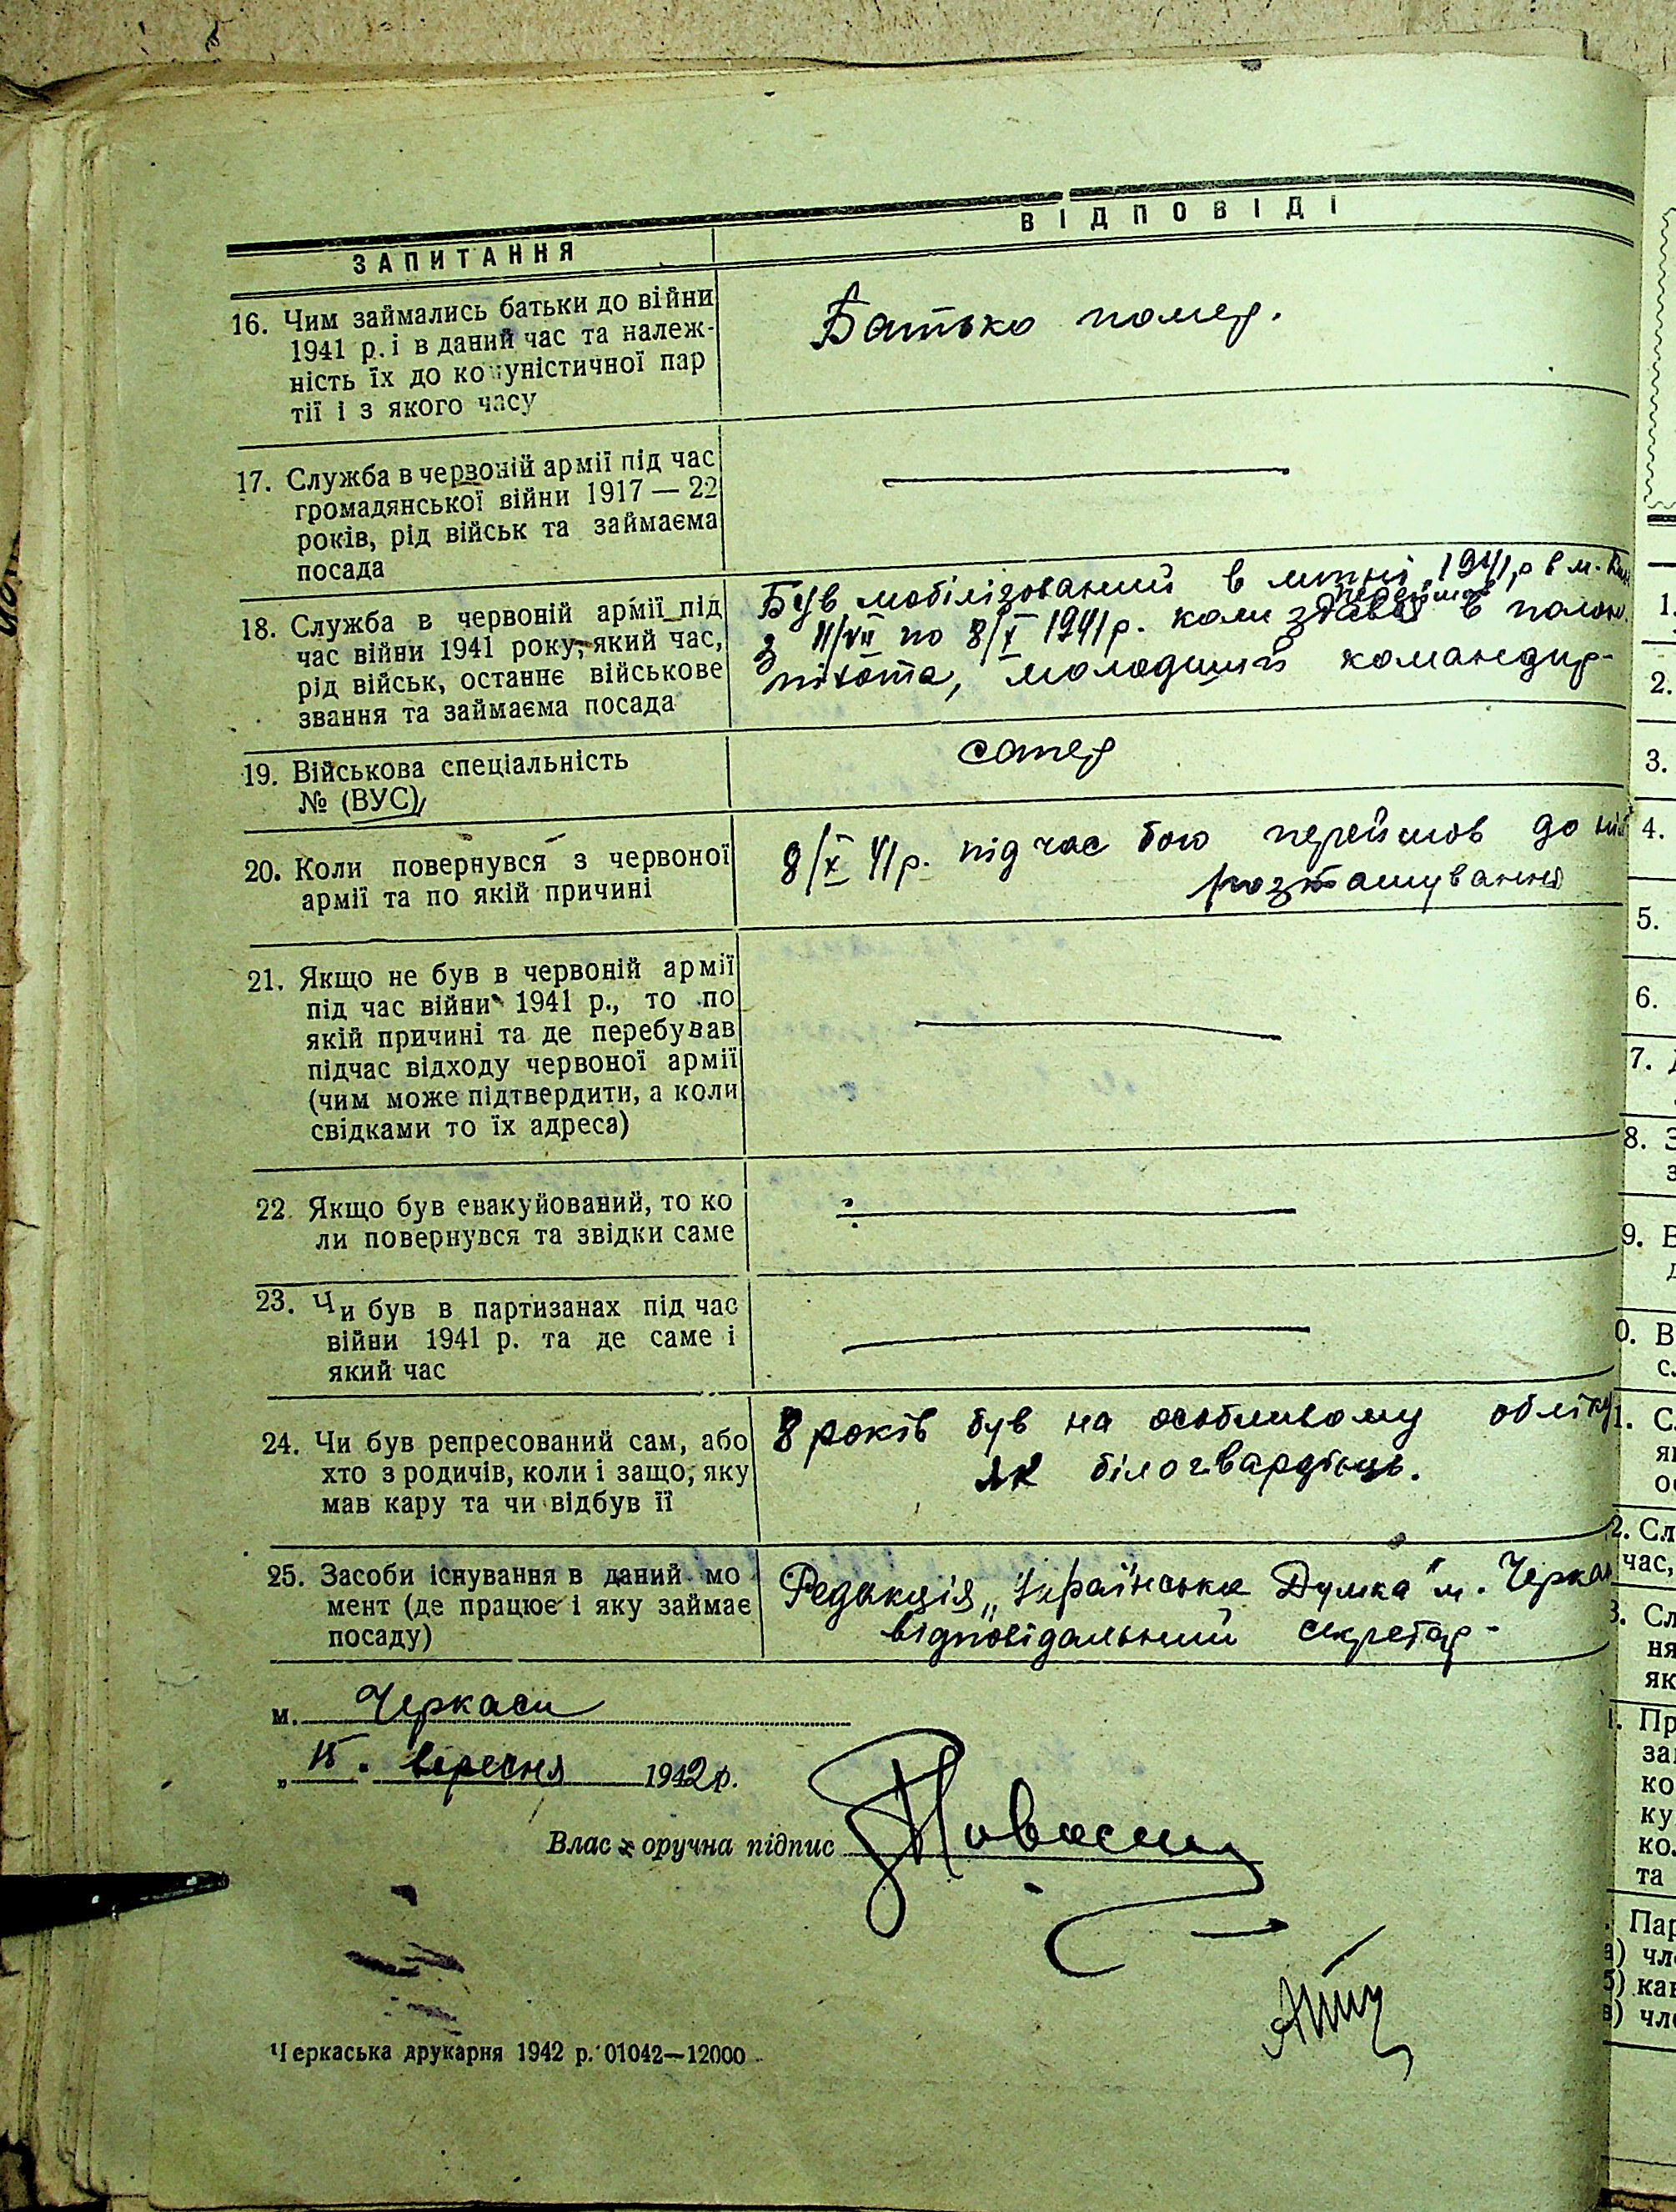 ЗАПИТАННЯ
ВІДПОВІДІ
16. Чим займались батьки до війни
1941 р. і в даний час та належ-
ність їх до комуністичної пар
тії і з якого часу
Батько помер.
17. Служба в червоній армії під час
громадянської війни 1917 — 22
років, рід військ та займаєма
посада
18. Служба в червоній армії під
час війни 1941 року, який час,
рід військ, останнє військове
звання та займаєма посада
Був мобілізований в липні 1941 р в м.
перейшов
з 11/VII по 8/X 1941 р. коли здавсь в полон.
піхота, молодший командир-
19. Військова спеціальність
№ (ВУС)
сапер
20. Коли повернувся з червоної
армії та по якій причині
8/X 41 р. під час бою перейшов до
розташування
21. Якщо не був в червоній армії
під час війни 1941 р., то по
якій причині та де перебував
підчас відходу червоної армії
(чим може підтвердити, а коли
свідками то їх адреса)
22. Якщо був евакуйований, то ко
ли повернувся та звідки саме
23. Чи був в партизанах під час
війни 1941 р. та де саме і
який час
24. Чи був репресований сам, або
хто з родичів, коли і защо, яку
мав кару та чи відбув її
8 років був на особливому обліку
як білогвардієць.
25. Засоби існування в даний мо
мент (де працює і яку займає
посаду)
Редакція „Українська Думка" м. Черкаси
відповідальний секретар-
м. Черкаси
„15. вересня 1942 р.
Власноручна підпис
Черкаська друкарня 1942 р. 01042—12000
1.
2.
3.
4.
5.
6.
7.
8.
9.